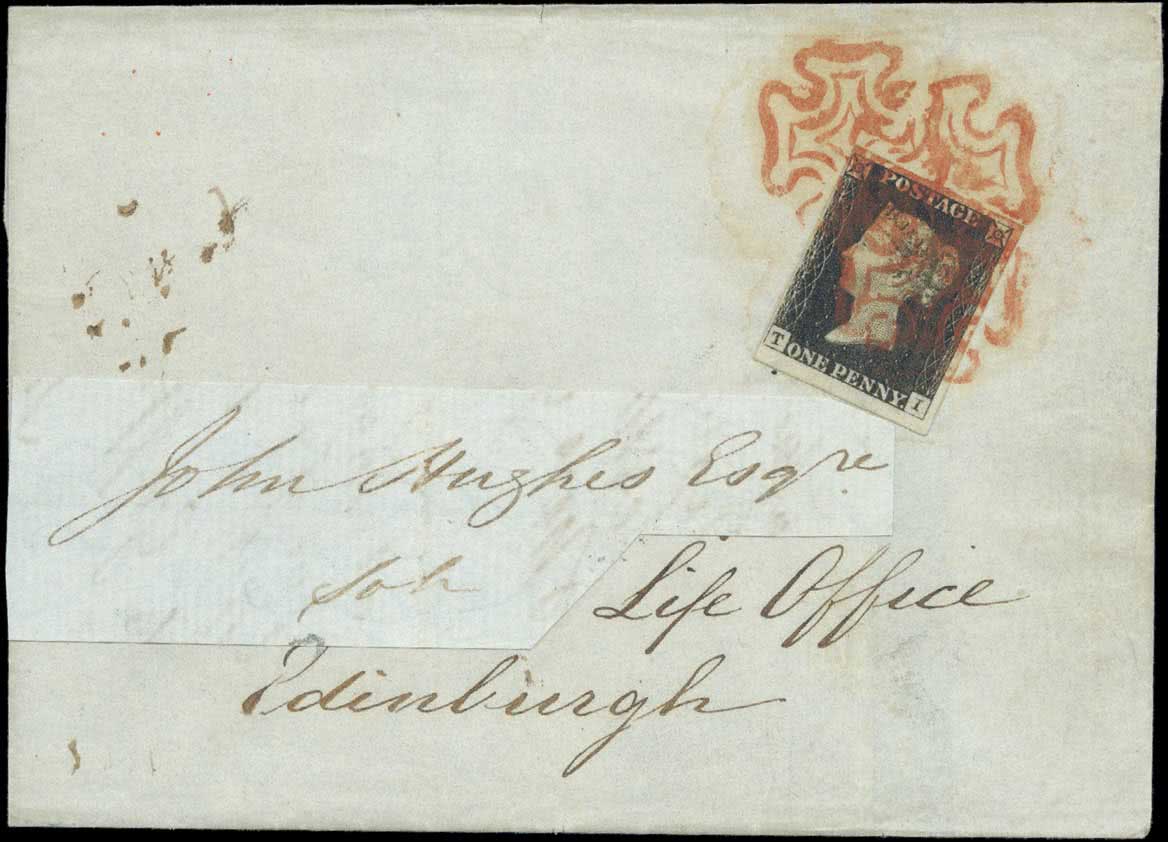 POSTAGE
T ONE PENNY. I
John Hughes Esqre
Life Office
Edinburgh